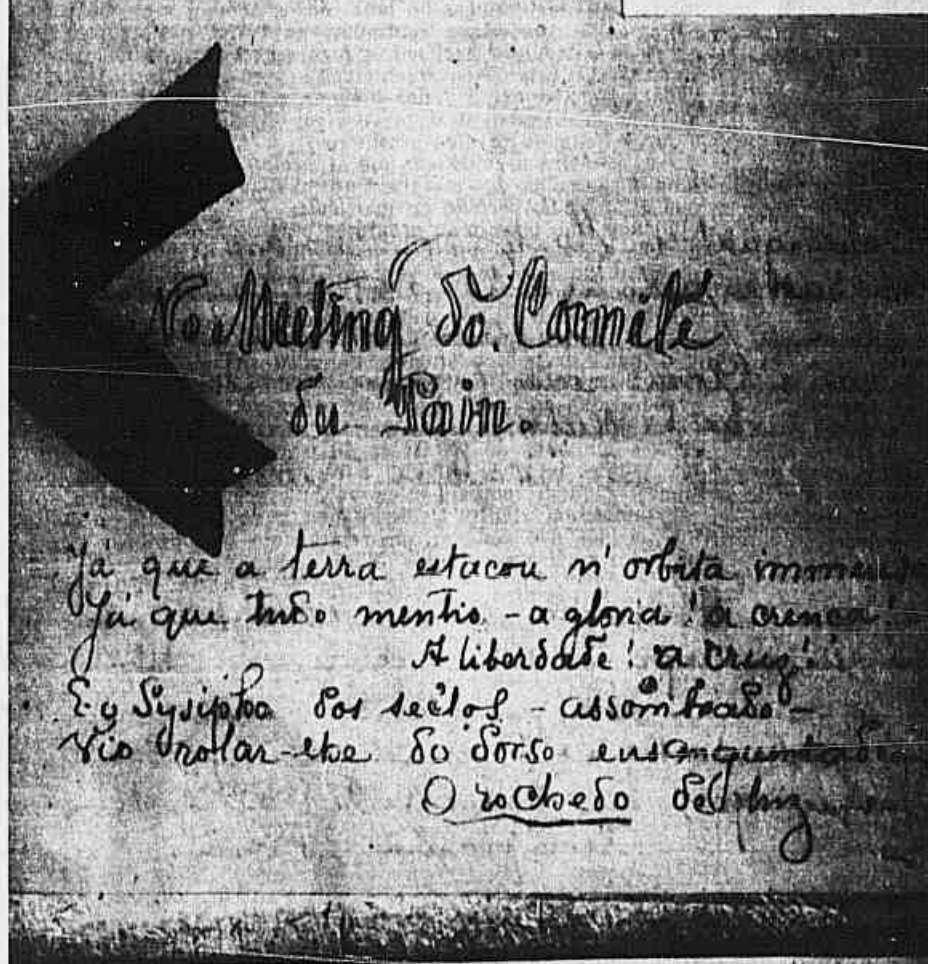 No Meeting do Comité
du Pain.
Já que a terra estacou n' orbita immensa
Já que tudo mentio - a gloria! a crença!
A liberdade! a cruz!
E o Sysipho dos seclos - assombrado -
Vio rolar-lhe do dorso ensanguentado
O rochedo de luz